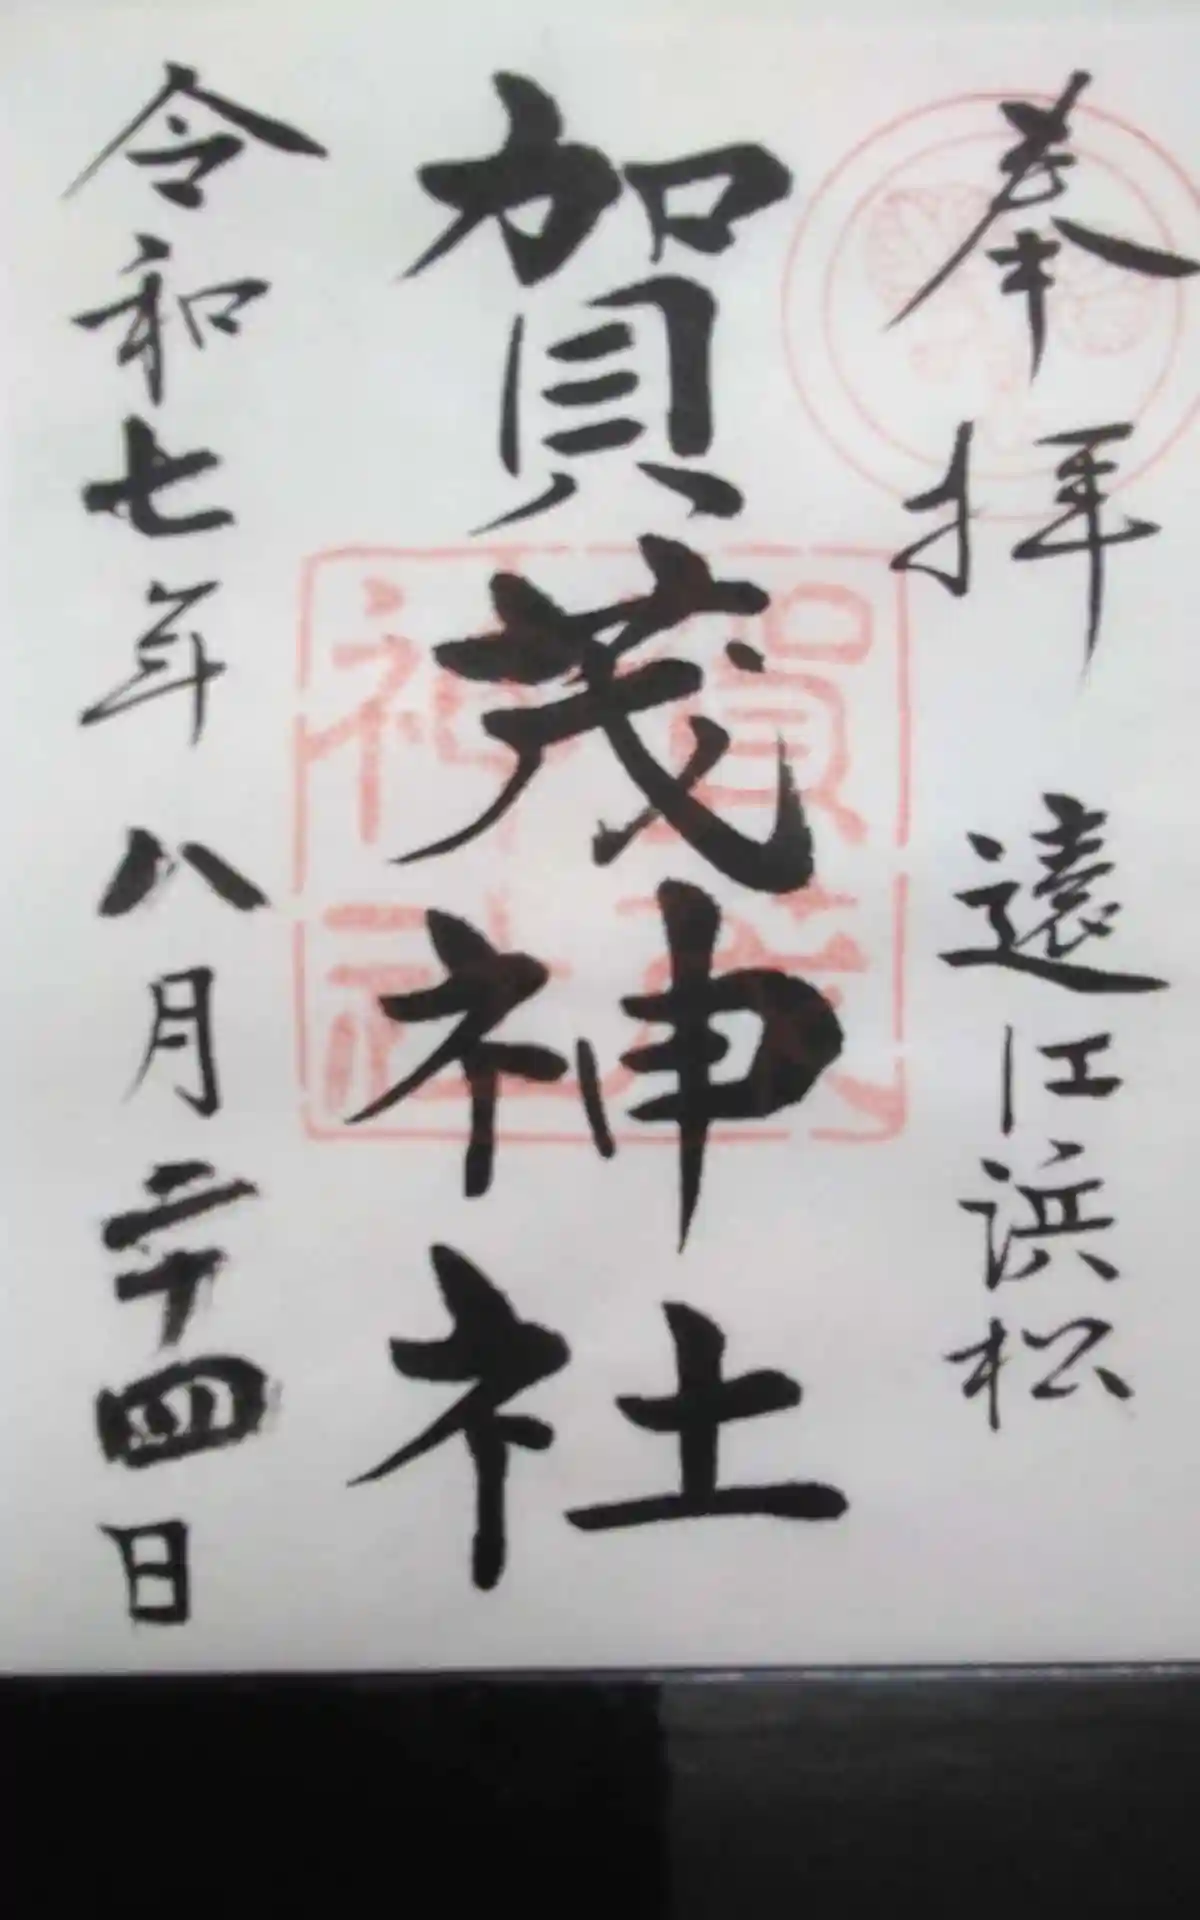 奉拝　遠江浜松
賀茂神社
賀茂神社
令和七年八月二十四日